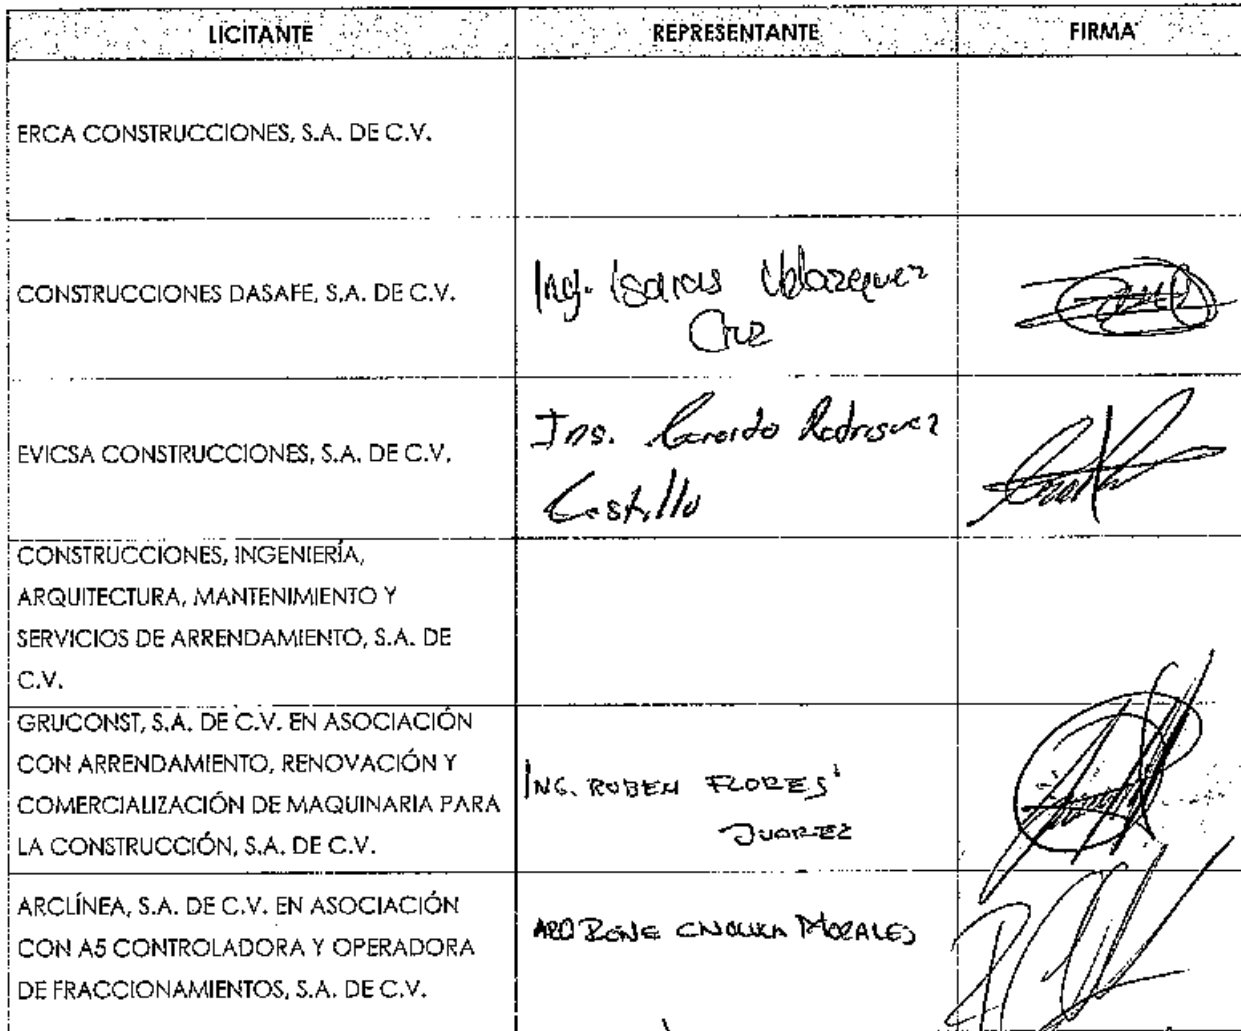 LICITANTE REPRESENTANTE FIRMA
ERCA CONSTRUCCIONES, S.A. DE C.V.
CONSTRUCCIONES DASAFE, S.A. DE C.V.
Ing. Isaias Velazquez
Cruz
EVICSA CONSTRUCCIONES, S.A. DE C.V.
Ing. Gerardo Rodriguez
Castillo
CONSTRUCCIONES, INGENIERÍA,
ARQUITECTURA, MANTENIMIENTO Y
SERVICIOS DE ARRENDAMIENTO, S.A. DE
C.V.
GRUCONST, S.A. DE C.V. EN ASOCIACIÓN
CON ARRENDAMIENTO, RENOVACIÓN Y
COMERCIALIZACIÓN DE MAQUINARIA PARA
LA CONSTRUCCIÓN, S.A. DE C.V.
ING. RUBEN FLORES
JUAREZ
ARCLÍNEA, S.A. DE C.V. EN ASOCIACIÓN
CON A5 CONTROLADORA Y OPERADORA
DE FRACCIONAMIENTOS, S.A. DE C.V.
MORALES